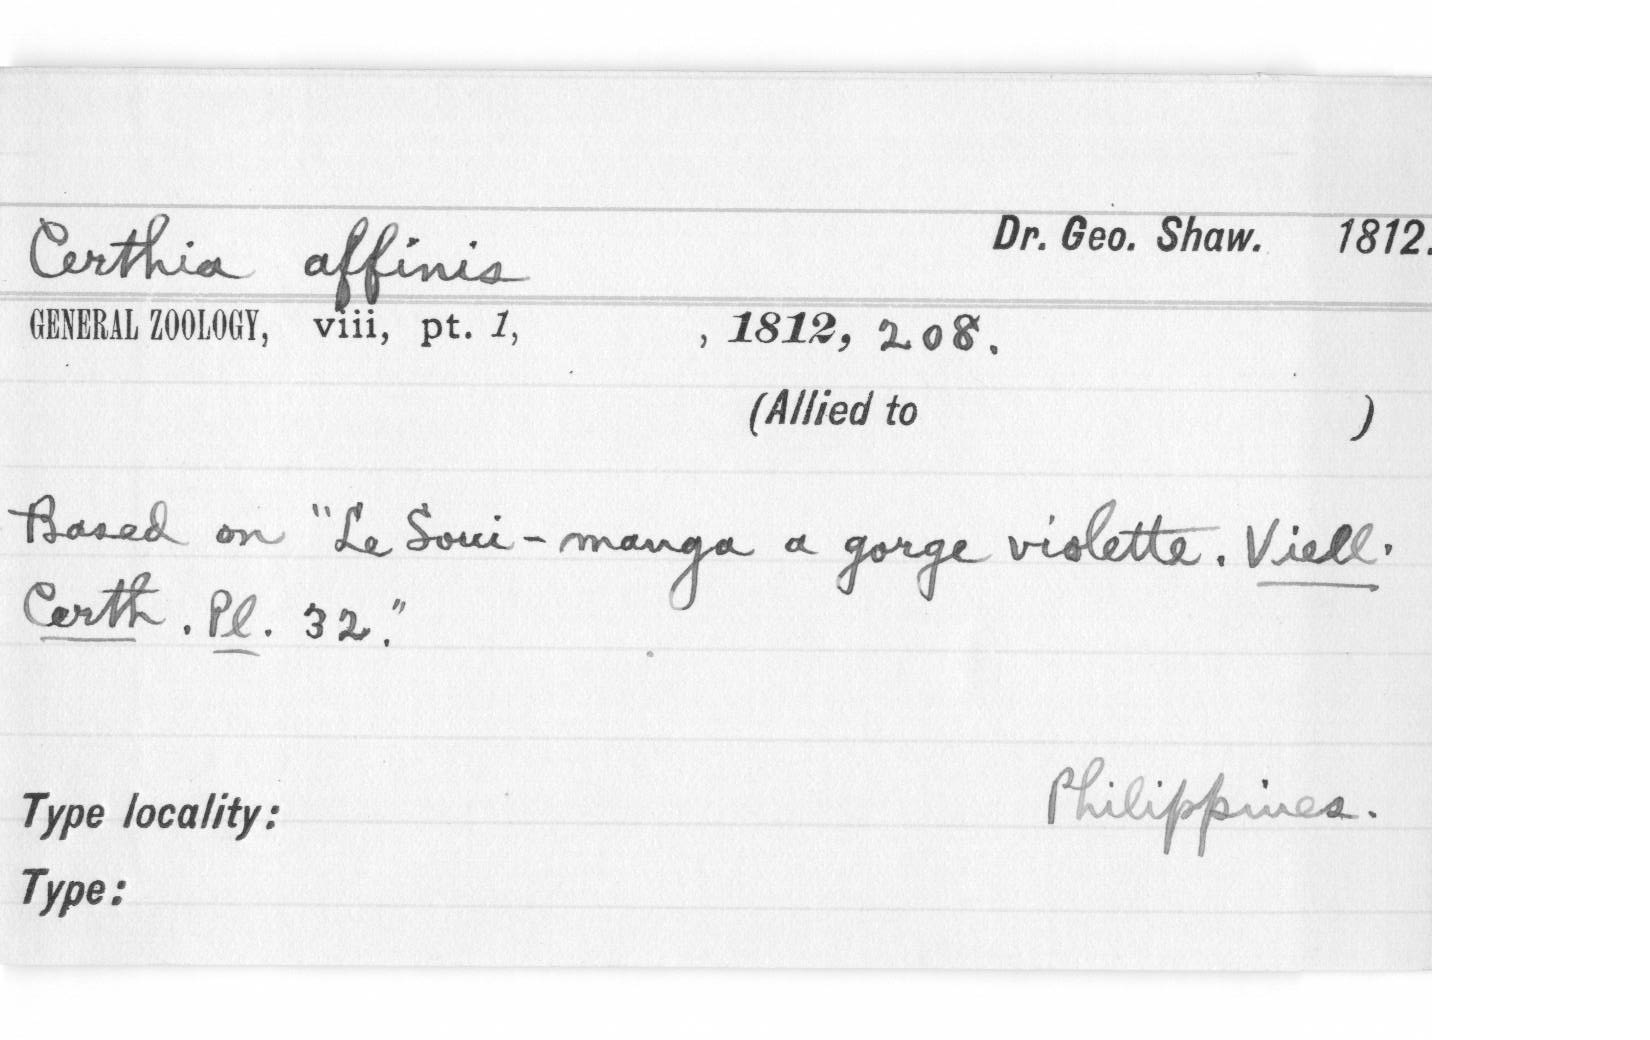 Certhia affinis Dr. Geo. Shaw. 1812.
GENERAL ZOOLOGY, viii, pt. 1, , 1812, 208.
(Allied to )
Based on "Le Soui-manga a gorge violette. Viell.
Certh. Pl. 32."
Type locality: Philippines.
Type: